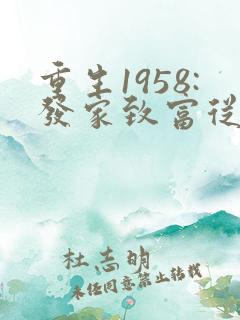 重生1958:
發家致富從
杜志明
未經同意禁止轉載